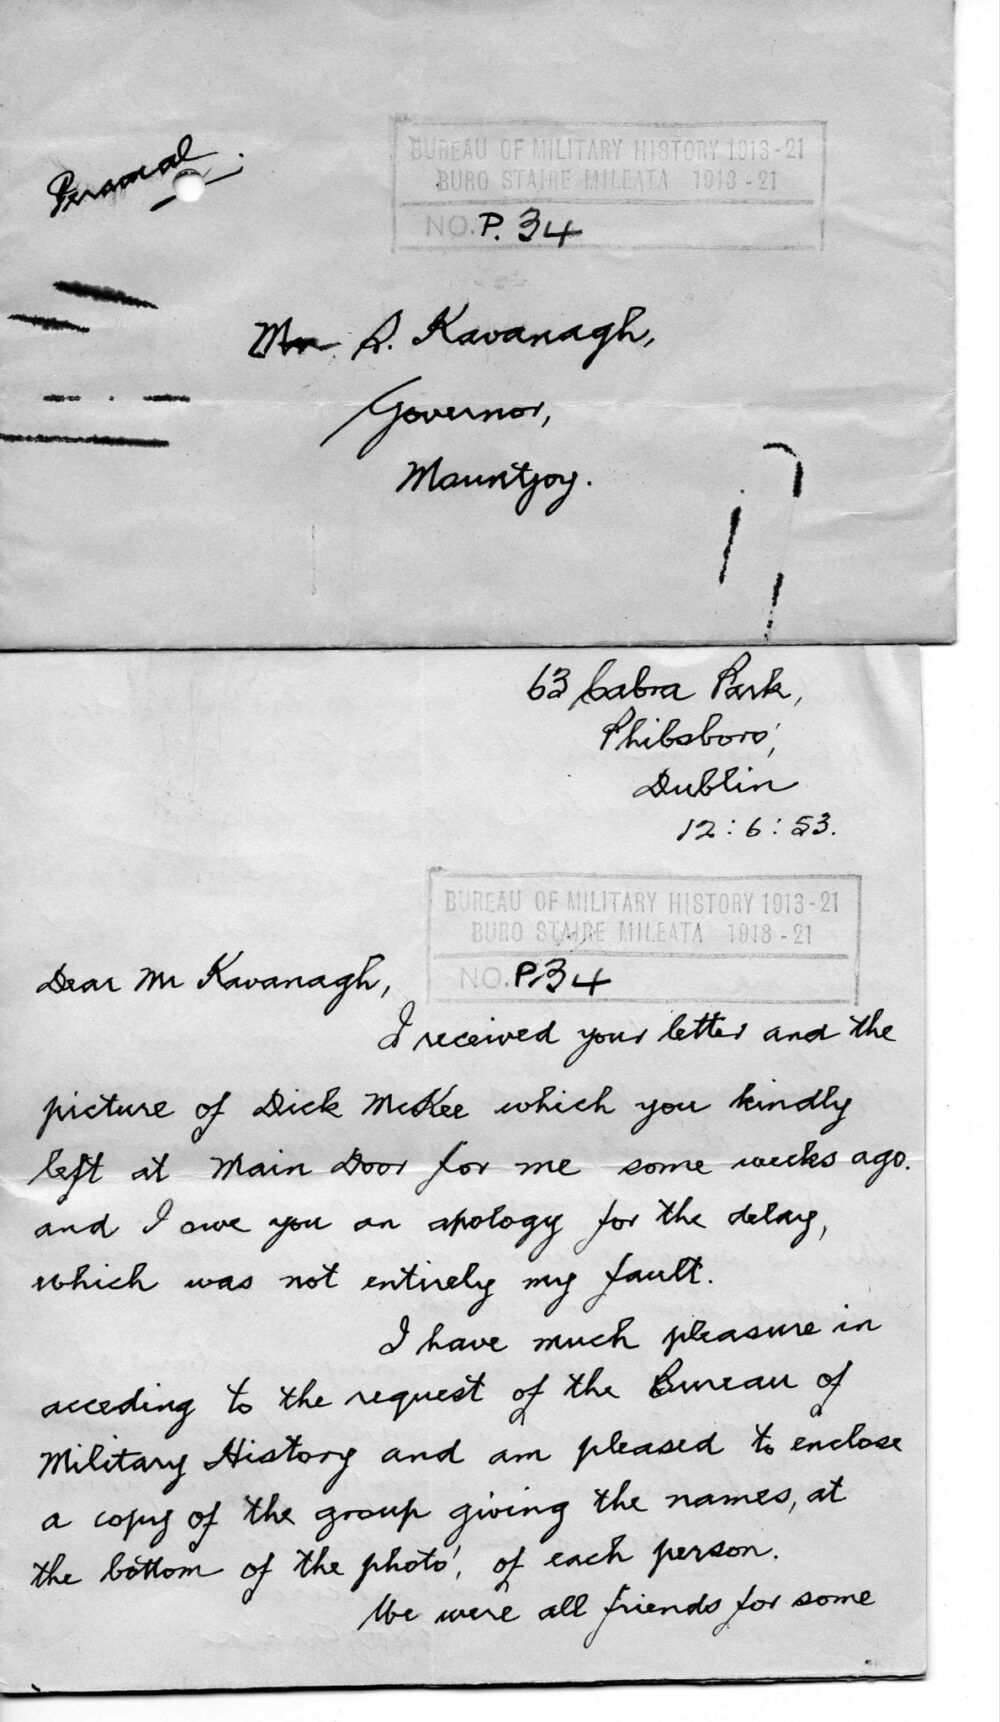 Personal.
BUREAU OF MILITARY HISTORY 1913-21
BURO STAIRE MILEATA 1913-21
NO. P. 34
Mr. S. Kavanagh,
Governor,
Mountjoy.
63 Cabra Park,
Phibsboro',
Dublin
12:6:53.
BUREAU OF MILITARY HISTORY 1913-21
BURO STAIRE MILEATA 1913-21
NO. P.34
Dear Mr Kavanagh,
I received your letter and the
picture of Dick McKee which you kindly
left at Main Door for me some weeks ago.
and I owe you an apology for the delay,
which was not entirely my fault.
I have much pleasure in
acceding to the request of the Bureau of
Military History and am pleased to enclose
a copy of the group giving the names, at
the bottom of the photo', of each person.
We were all friends for some